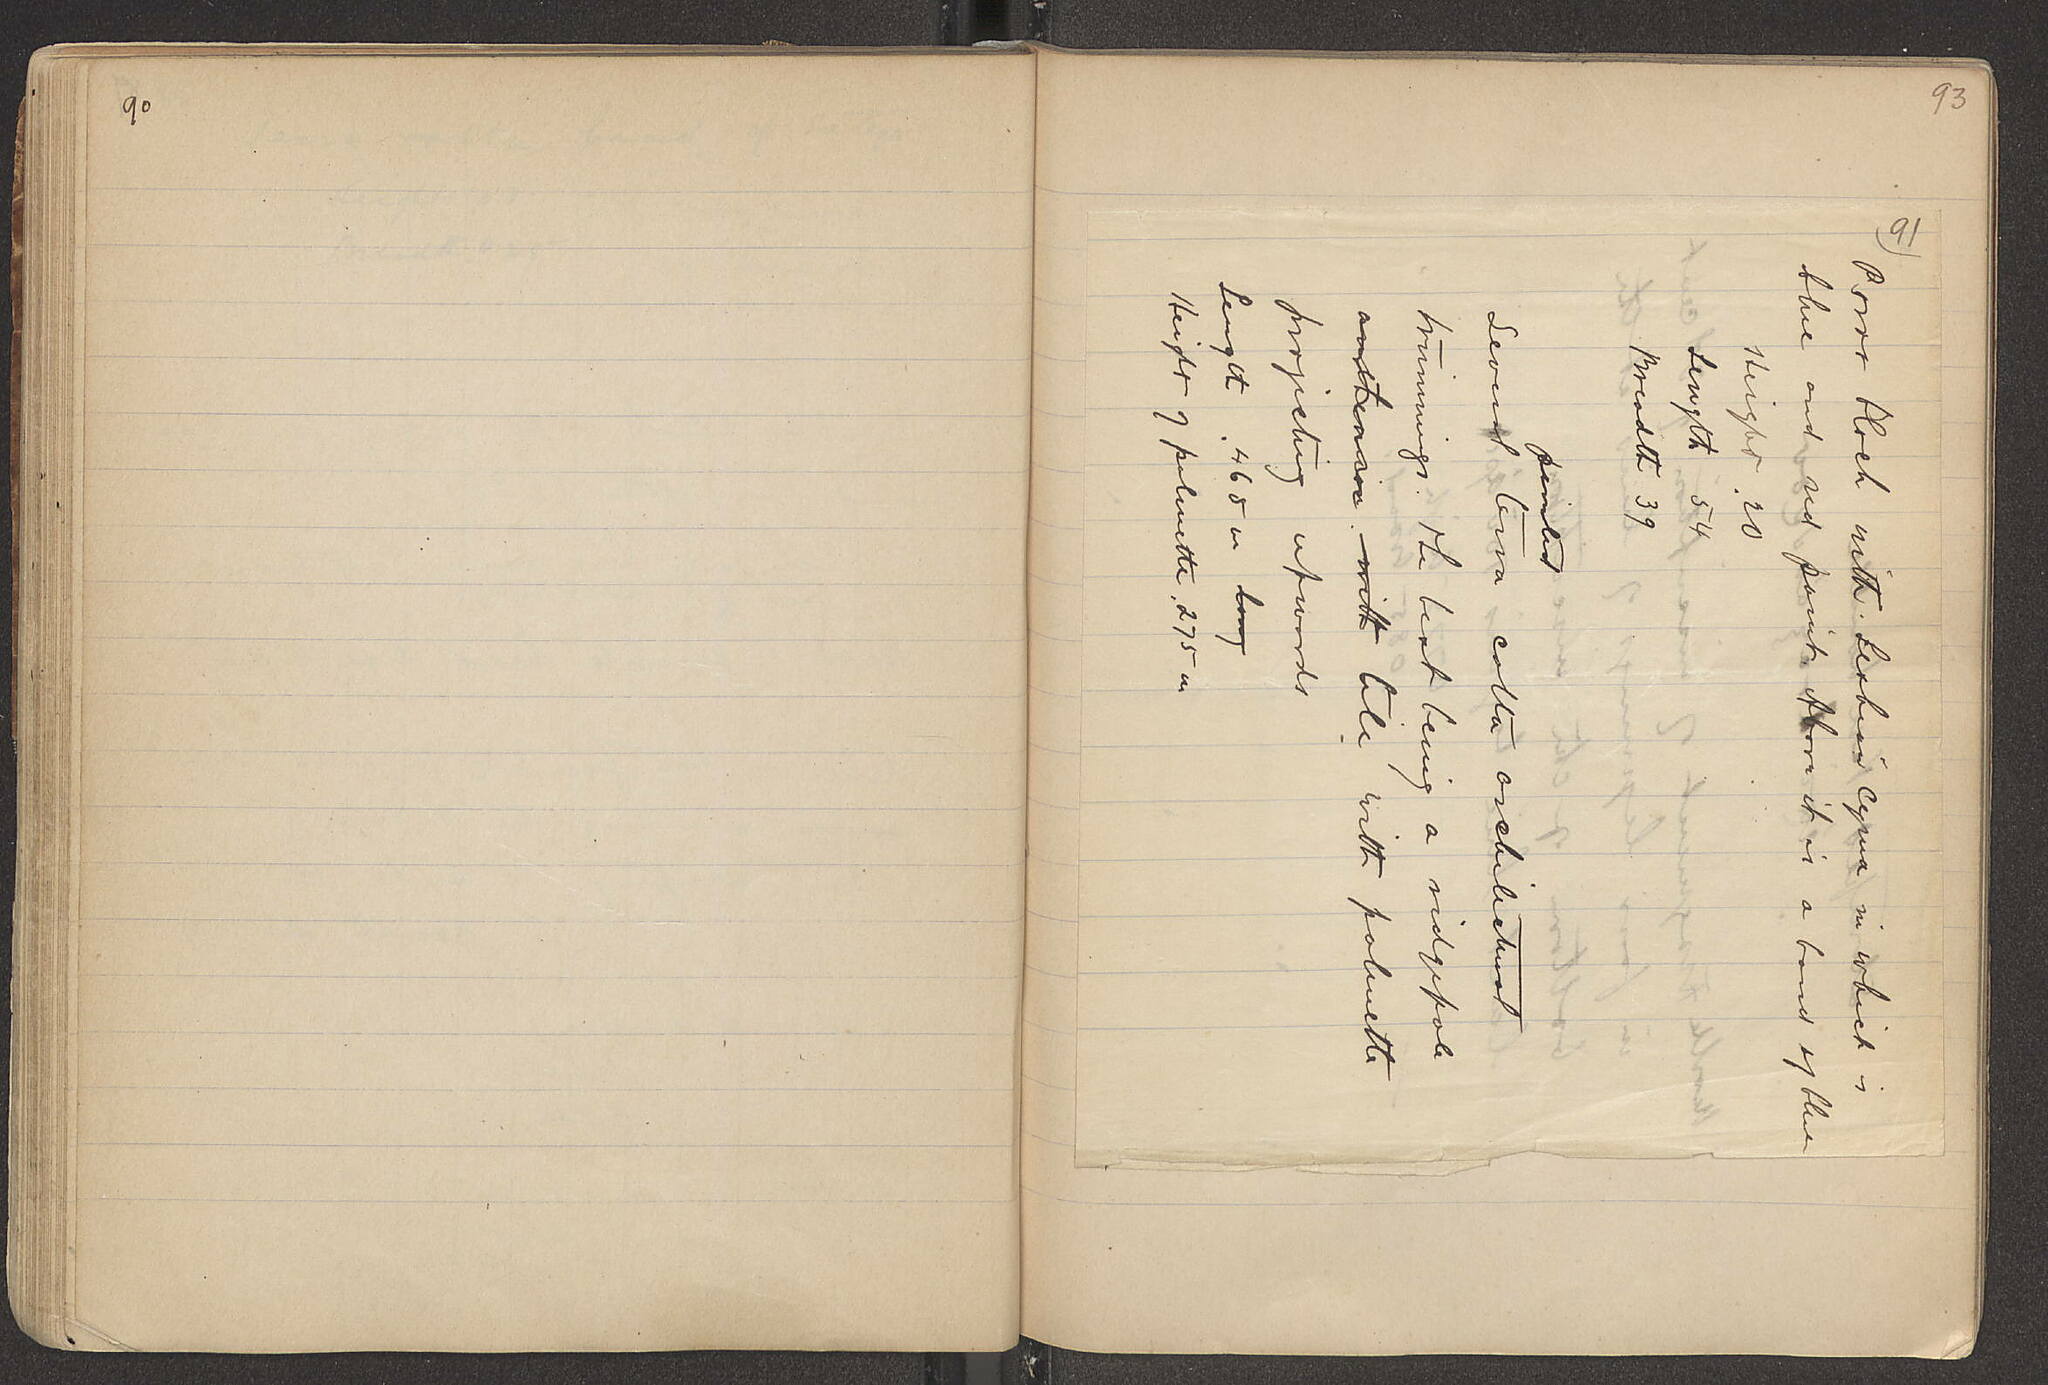 90
93
91
Poros block with Lesbian cyma in which is
blue and red paint. Above it is a band of blue
Height .20
Length 54
Breadth 39
painted
Several terra cotta architectural
trimmings. The best being a ridgepole
with tile with palmette
projecting upwards
Length .465 m long
Height of palmette .275 m